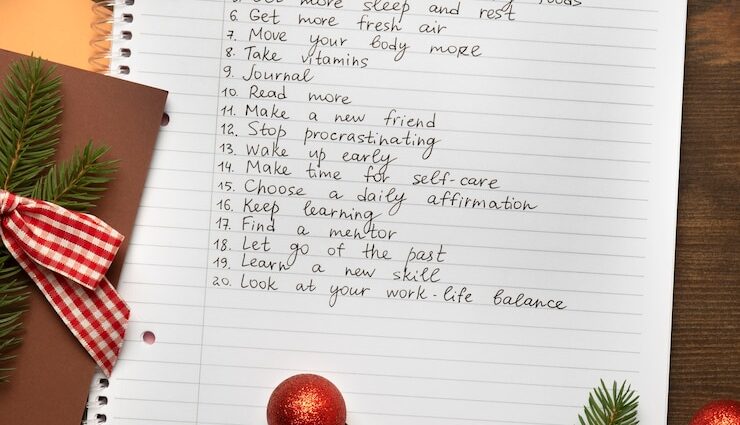 foods
5. Get more sleep and rest
6. Get more fresh air
7. Move your body more
8. Take vitamins
9. Journal
10. Read more
11. Make a new friend
12. Stop procrastinating
13. Wake up early
14. Make time for self-care
15. Choose a daily affirmation
16. Keep learning
17. Find a mentor
18. Let go of the past
19. Learn a new skill
20. Look at your work-life balance